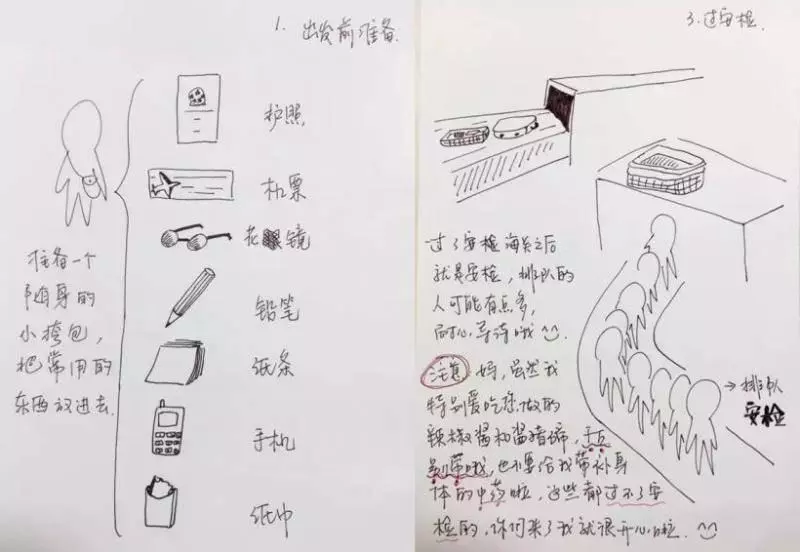 1. 出发前准备
护照
机票
花眼镜
铅笔
纸条
手机
纸巾
准备一个
随身的
小挎包,
把常用的
东西放进去
3.过安检
过了安检海关之后
就是安检,排队的
人可能有点多,
耐心等待哦
注意 妈,虽然我
特别爱吃您做的
辣椒酱和酱猪蹄,千万
别带哦,也不要给我带补身
体的中药啦,这些都过不了安
检的,你们来了我就很开心啦
→排队
安检